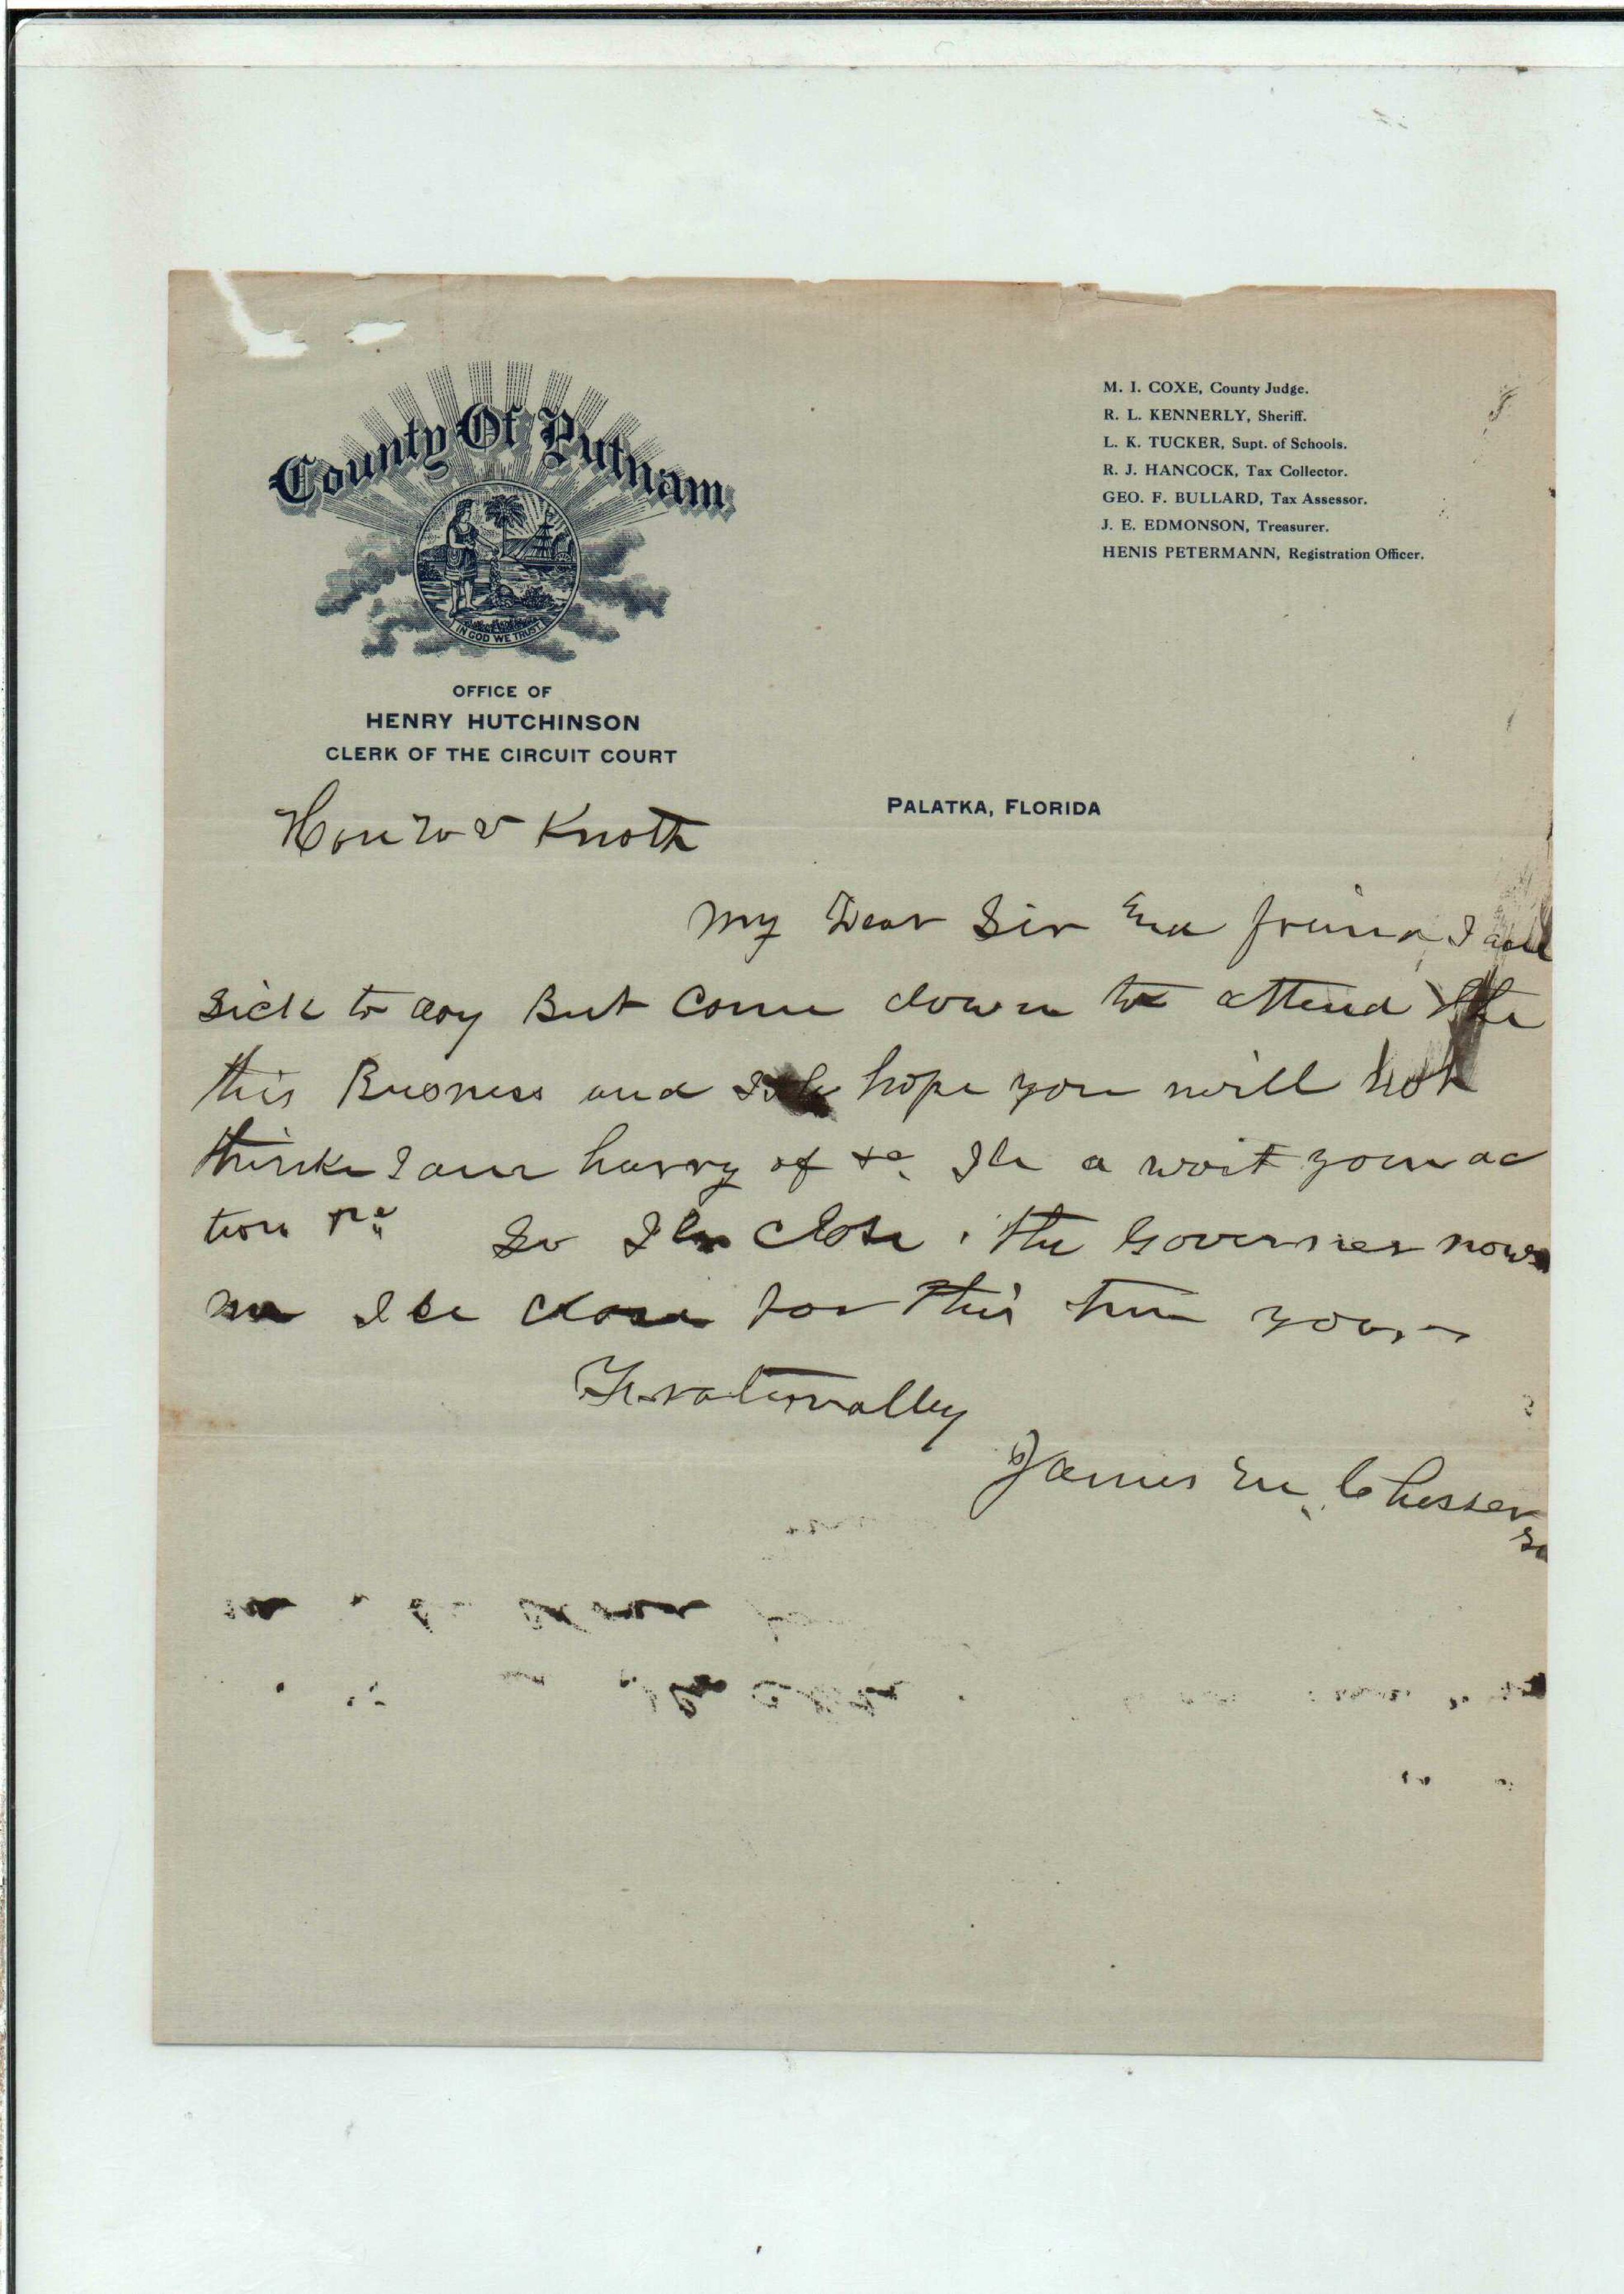 County Of Putnam
IN GOD WE TRUST
OFFICE OF
HENRY HUTCHINSON
CLERK OF THE CIRCUIT COURT
M. I. COXE, County Judge.
R. L. KENNERLY, Sheriff.
L. K. TUCKER, Supt. of Schools.
R. J. HANCOCK, Tax Collector.
GEO. F. BULLARD, Tax Assessor.
J. E. EDMONSON, Treasurer.
HENIS PETERMANN, Registration Officer.
PALATKA, FLORIDA
Hon W V Knott
My Dear Sir friend I am
sick to day But Come down to attend the
this Busness and hope you will not
think I am hurry of Ile a wait your ac
tion So Ile Close . the Governer nows
me Ile close for this time yours
Fraternalley
James M. Chesser
Sr